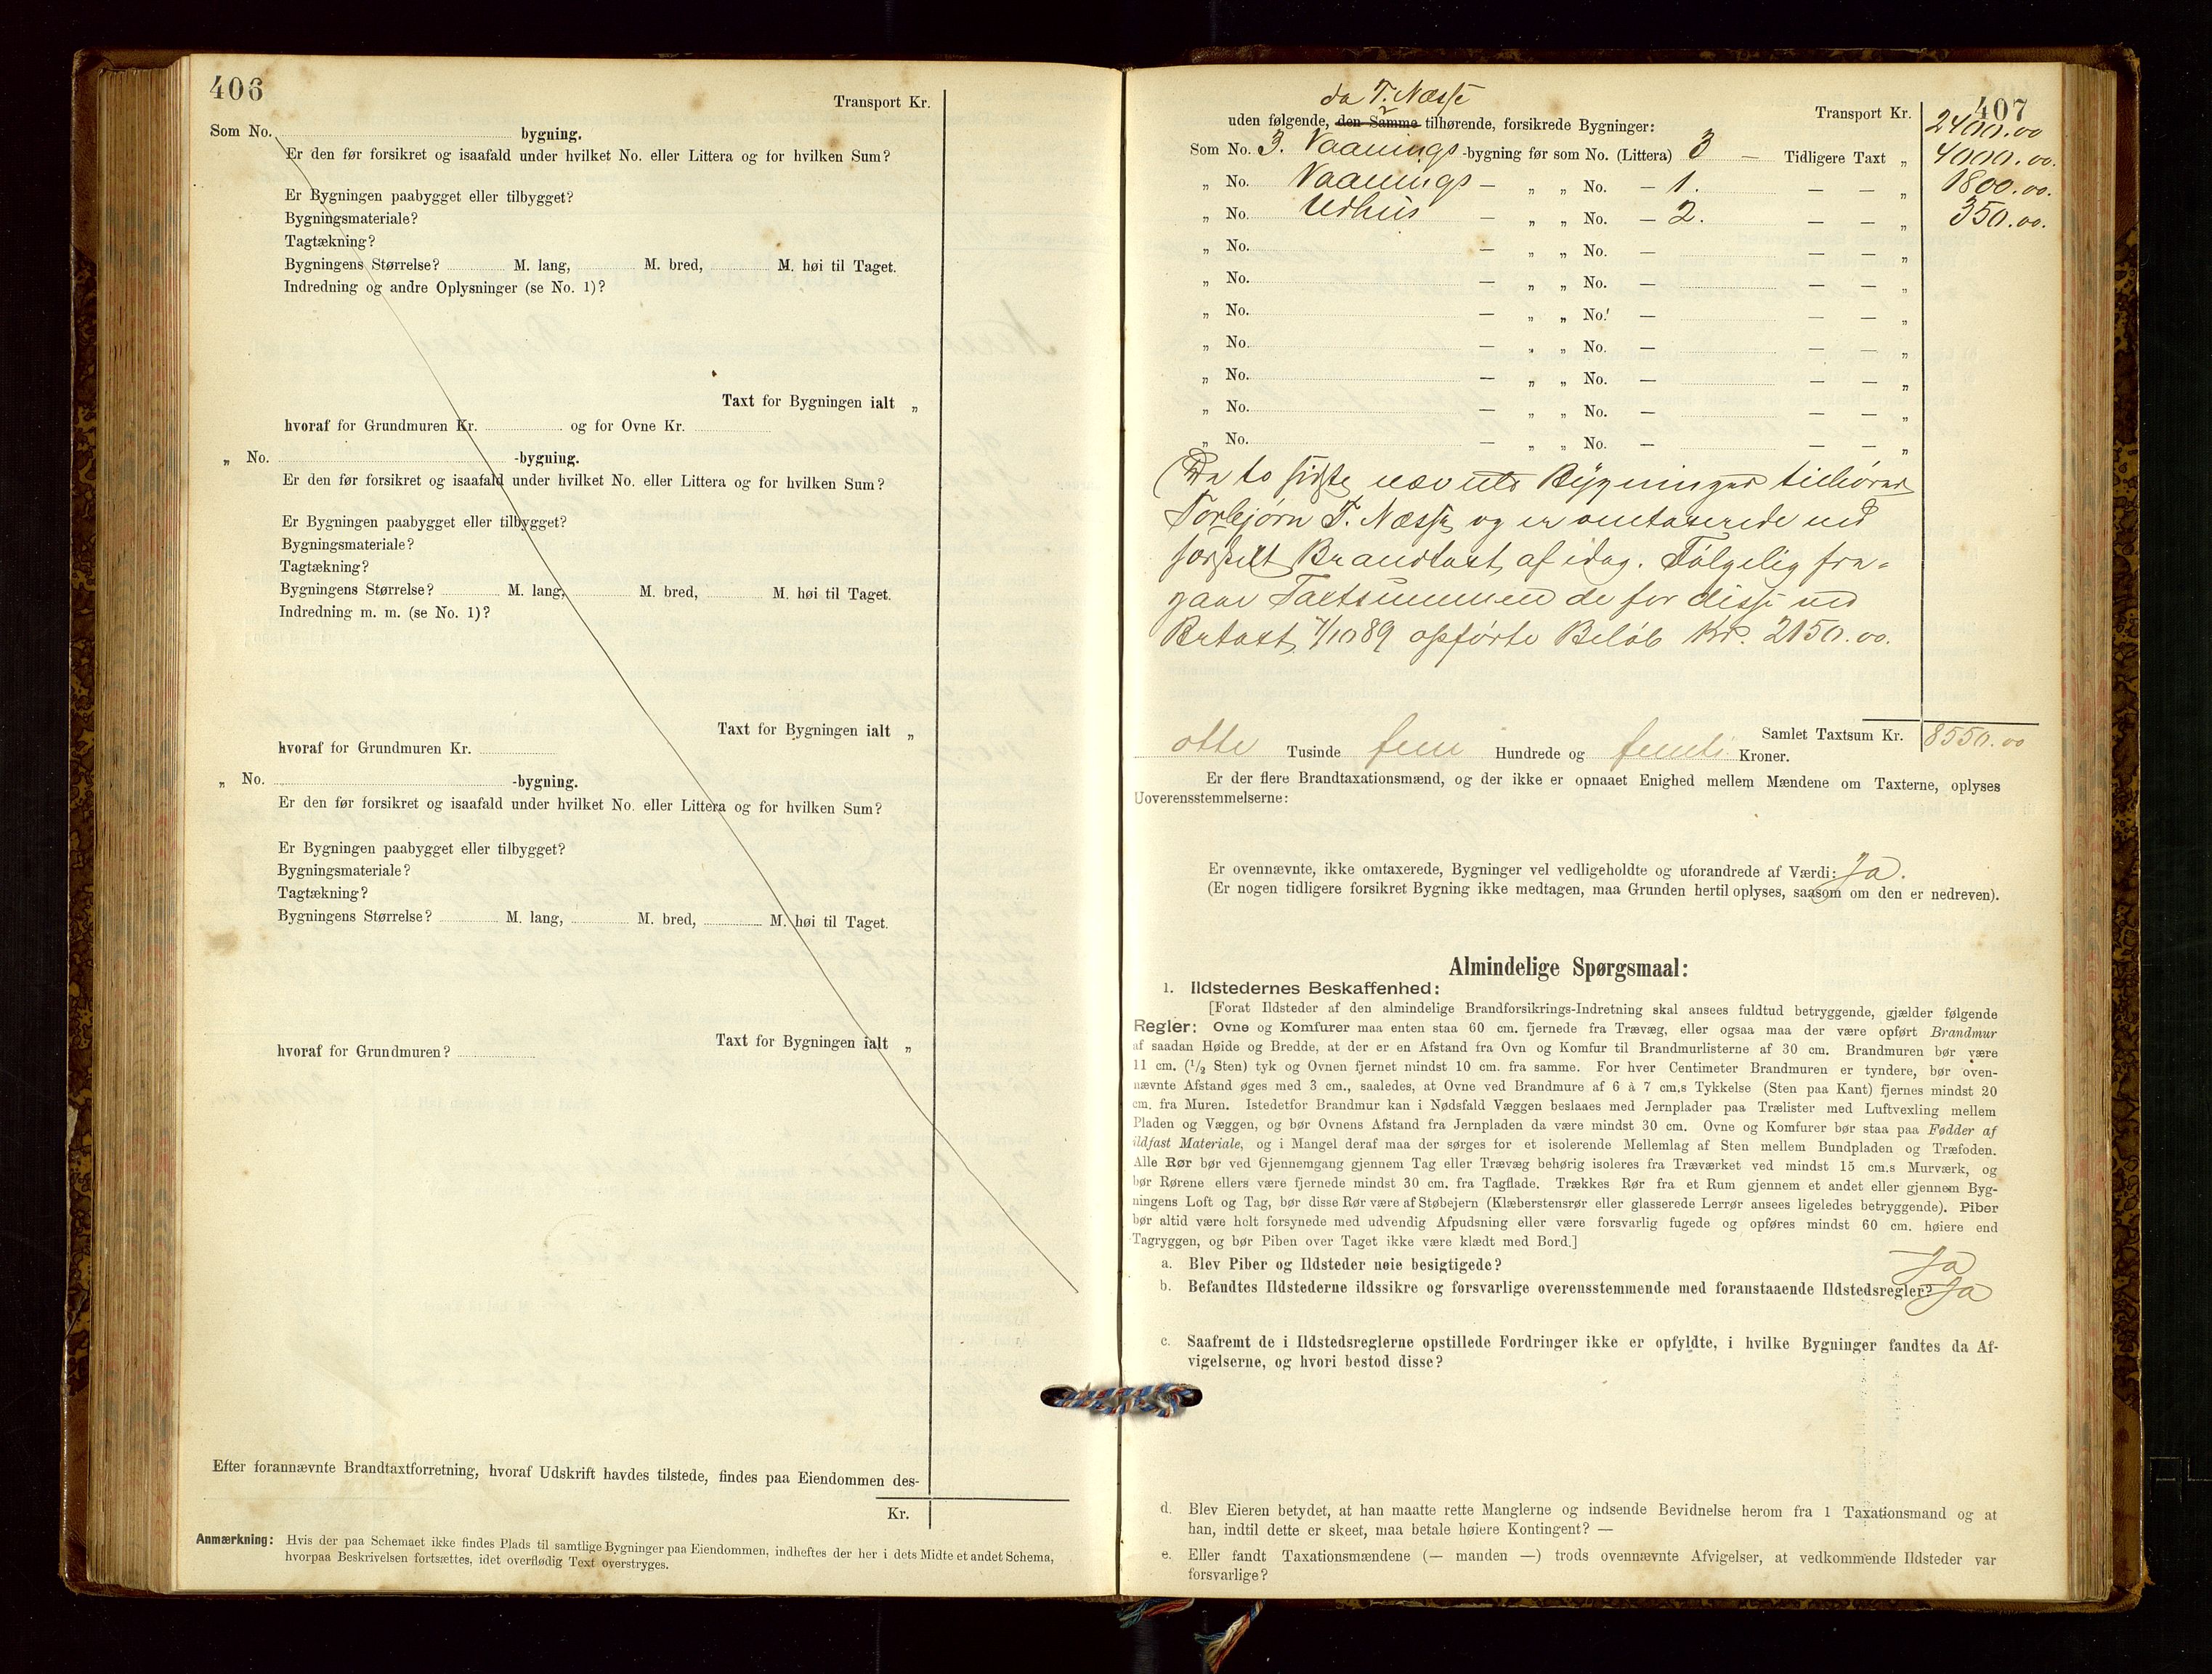 406
Transport Kr.
Som No. bygning.
Er den før forsikret og isaafald under hvilket No. eller Littera og for hvilken Sum?
Er Bygningen paabygget eller tilbygget?
Bygningsmateriale?
Tagtækning?
Bygningens Størrelse? M. lang, M. bred, M. høi til Taget.
Indredning og andre Oplysninger (se No. 1)?
Taxt for Bygningen ialt „
hvoraf for Grundmuren Kr. og for Ovne Kr.
„ No. -bygning.
Er den før forsikret og isaafald under hvilket No. eller Littera og for hvilken Sum?
Er Bygningen paabygget eller tilbygget?
Bygningsmateriale?
Tagtækning?
Bygningens Størrelse? M. lang, M. bred, M. høi til Taget.
Indredning m. m. (se No. 1)?
Taxt for Bygningen ialt „
hvoraf for Grundmuren Kr.
„ No. -bygning.
Er den før forsikret og isaafald under hvilket No. eller Littera og for hvilken Sum?
Er Bygningen paabygget eller tilbygget?
Bygningsmateriale?
Tagtækning?
Bygningens Størrelse? M. lang, M. bred, M. høi til Taget.
Taxt for Bygningen ialt „
hvoraf for Grundmuren?
Efter forannævnte Brandtaxtforretning, hvoraf Udskrift havdes tilstede, findes paa Eiendommen des-
Kr.
Anmærkning: Hvis der paa Schemaet ikke findes Plads til samtlige Bygninger paa Eiendommen, indheftes der her i dets Midte et andet Schema,
hvorpaa Beskrivelsen fortsættes, idet overflødig Text overstryges.
407
da T. Næsse
Transport Kr. 2400.00
uden følgende, den Samme tilhørende, forsikrede Bygninger:
Som No. 3. Vaanings -bygning før som No. (Littera) 3 — Tidligere Taxt „ 4000.00.
„ No. Vaanings — „ „ No. — 1. — — „ 1800.00.
„ No. Udhus — „ „ No. — 2. — — „ 350.00.
„ No. — „ „ No. — — — „
„ No. — „ „ No. — — — „
„ No. — „ „ No. — — — „
„ No. — „ „ No. — — — „
„ No. — „ „ No. — — — „
„ No. — „ „ No. — — — „
„ No. — „ „ No. — — — „
(De to sidste nævnte Bygninger tilhører
Torbjørn T. Næsse og er omtaxerede ved
særskilt Brandtaxt af idag. Følgelig fra-
gaar Taxtsummen de for disse ved
Br.taxt 7/10 89 opførte Beløb Kr. 2150.00.
Samlet Taxtsum Kr. 8550.00
otte Tusinde fem Hundrede og femti Kroner.
Er der flere Brandtaxationsmænd, og der ikke er opnaaet Enighed mellem Mændene om Taxterne, oplyses
Uoverensstemmelserne:
Er ovennævnte, ikke omtaxerede, Bygninger vel vedligeholdte og uforandrede af Værdi: Ja.
(Er nogen tidligere forsikret Bygning ikke medtagen, maa Grunden hertil oplyses, saasom om den er nedreven).
Almindelige Spørgsmaal:
1. Ildstedernes Beskaffenhed:
[Forat Ildsteder af den almindelige Brandforsikrings-Indretning skal ansees fuldtud betryggende, gjælder følgende
Regler: Ovne og Komfurer maa enten staa 60 cm. fjernede fra Trævæg, eller ogsaa maa der være opført Brandmur
af saadan Høide og Bredde, at der er en Afstand fra Ovn og Komfur til Brandmurlisterne af 30 cm. Brandmuren bør være
11 cm. (½ Sten) tyk og Ovnen fjernet mindst 10 cm. fra samme. For hver Centimeter Brandmuren er tyndere, bør oven-
nævnte Afstand øges med 3 cm., saaledes, at Ovne ved Brandmure af 6 à 7 cm.s Tykkelse (Sten paa Kant) fjernes mindst 20
cm. fra Muren. Istedetfor Brandmur kan i Nødsfald Væggen beslaaes med Jernplader paa Trælister med Luftvexling mellem
Pladen og Væggen, og bør Ovnens Afstand fra Jernpladen da være mindst 30 cm. Ovne og Komfurer bør staa paa Fødder af
ildfast Materiale, og i Mangel deraf maa der sørges for et isolerende Mellemlag af Sten mellem Bundpladen og Træfoden.
Alle Rør bør ved Gjennemgang gjennem Tag eller Trævæg behørig isoleres fra Træværket ved mindst 15 cm.s Murværk, og
bør Rørene ellers være fjernede mindst 30 cm. fra Tagflade. Trækkes Rør fra et Rum gjennem et andet eller gjennem Byg-
ningens Loft og Tag, bør disse Rør være af Støbejern (Klæberstensrør eller glasserede Lerrør ansees ligeledes betryggende). Piber
bør altid være helt forsynede med udvendig Afpudsning eller være forsvarlig fugede og opføres mindst 60 cm. høiere end
Tagryggen, og bør Piben over Taget ikke være klædt med Bord.]
a. Blev Piber og Ildsteder nøie besigtigede? Ja
b. Befandtes Ildstederne ildssikre og forsvarlige overensstemmende med foranstaaende Ildstedsregler? Ja
c. Saafremt de i Ildstedsreglerne opstillede Fordringer ikke er opfyldte, i hvilke Bygninger fandtes da Af-
vigelserne, og hvori bestod disse?
d. Blev Eieren betydet, at han maatte rette Manglerne og indsende Bevidnelse herom fra 1 Taxationsmand og at
han, indtil dette er skeet, maa betale høiere Kontingent? —
e. Eller fandt Taxationsmændene (— manden —) trods ovennævnte Afvigelser, at vedkommende Ildsteder var
forsvarlige?